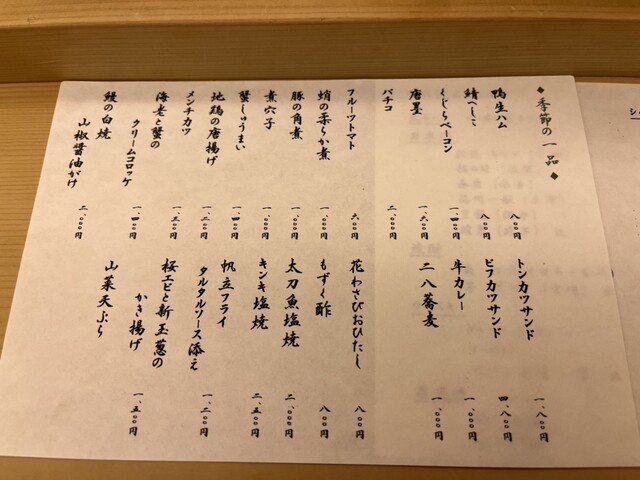 ◆季節の一品◆
鴨生ハム 八〇〇円
鯖へしこ 八〇〇円
くじらベーコン 一、四〇〇円
唐墨 一、六〇〇円
バチコ 二、〇〇〇円
フルーツトマト 六〇〇円
蛸の柔らか煮 一、〇〇〇円
豚の角煮 一、〇〇〇円
煮穴子 一、〇〇〇円
蟹しゅうまい 一、四〇〇円
地鶏の唐揚げ 一、二〇〇円
メンチカツ 一、三〇〇円
海老と蟹の
クリームコロッケ 一、四〇〇円
鰻の白焼
山椒醤油がけ 二、〇〇〇円
トンカツサンド 一、八〇〇円
ビフカツサンド 四、八〇〇円
牛カレー 一、〇〇〇円
二八蕎麦 一、〇〇〇円
花わさびおひたし 八〇〇円
もずく酢 八〇〇円
太刀魚塩焼 二、〇〇〇円
キンキ塩焼 二、五〇〇円
帆立フライ
タルタルソース添え 一、二〇〇円
桜エビと新玉葱の
かき揚げ 一、五〇〇円
山菜天ぷら